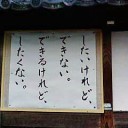 したいけれど、
できない。
できるけれど、
したくない。